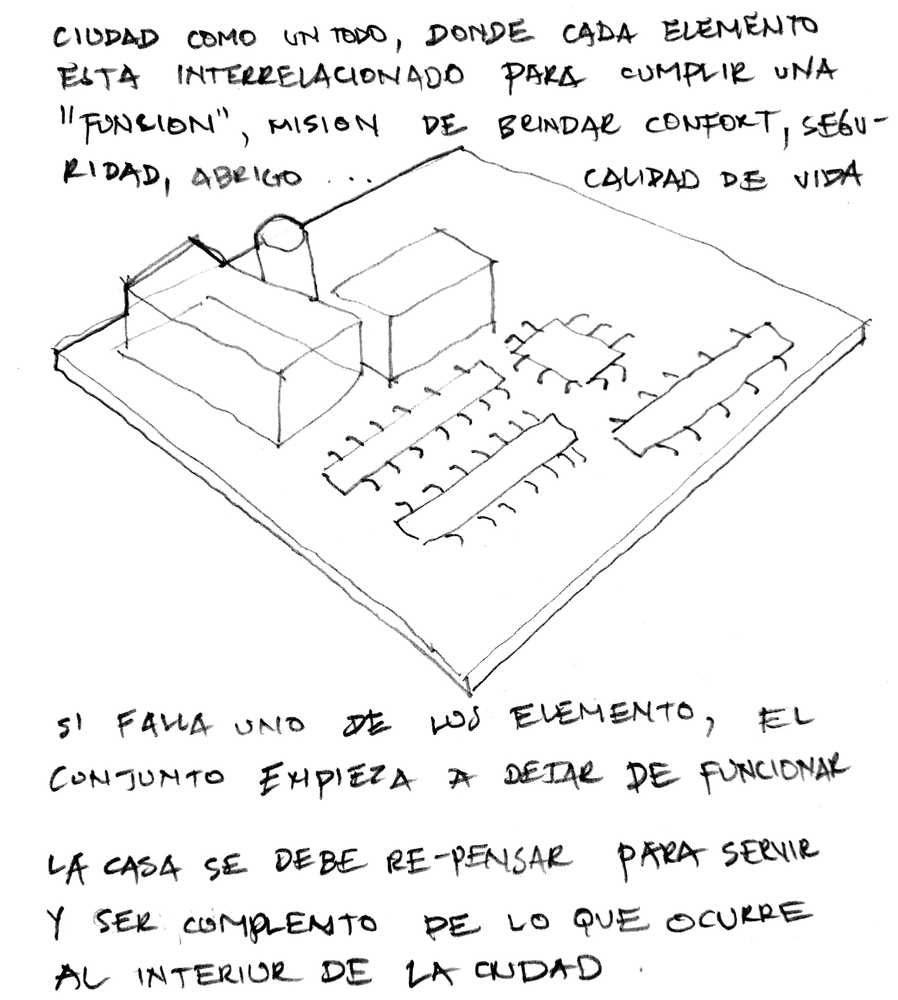 CIUDAD COMO UN TODO, DONDE CADA ELEMENTO
ESTA INTERRELACIONADO PARA CUMPLIR UNA
"FUNCION", MISION DE BRINDAR CONFORT, SEGU-
RIDAD, ABRIGO ... CALIDAD DE VIDA
SI FALLA UNO DE LOS ELEMENTO, EL
CONJUNTO EMPIEZA A DEJAR DE FUNCIONAR
LA CASA SE DEBE RE-PENSAR PARA SERVIR
Y SER COMPLENTO DE LO QUE OCURRE
AL INTERIOR DE LA CIUDAD.